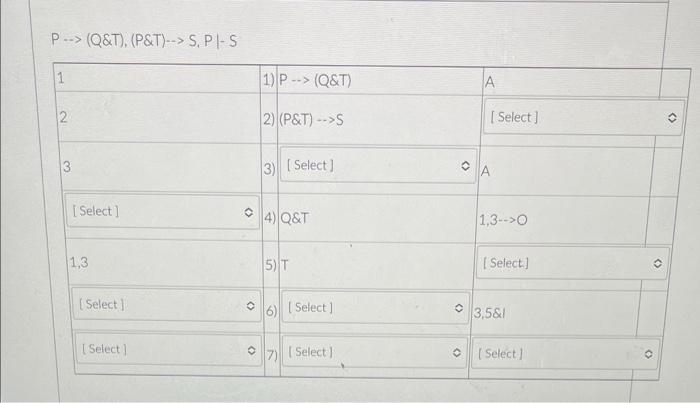 P --> (Q&T), (P&T)--> S, P |- S
1 1) P --> (Q&T) A
2 2) (P&T) -->S [ Select ]
3 3) [ Select ] A
[ Select ] 4) Q&T 1,3-->O
1,3 5) T [ Select ]
[ Select ] 6) [ Select ] 3,5&I
[ Select ] 7) [ Select ] [ Select ]